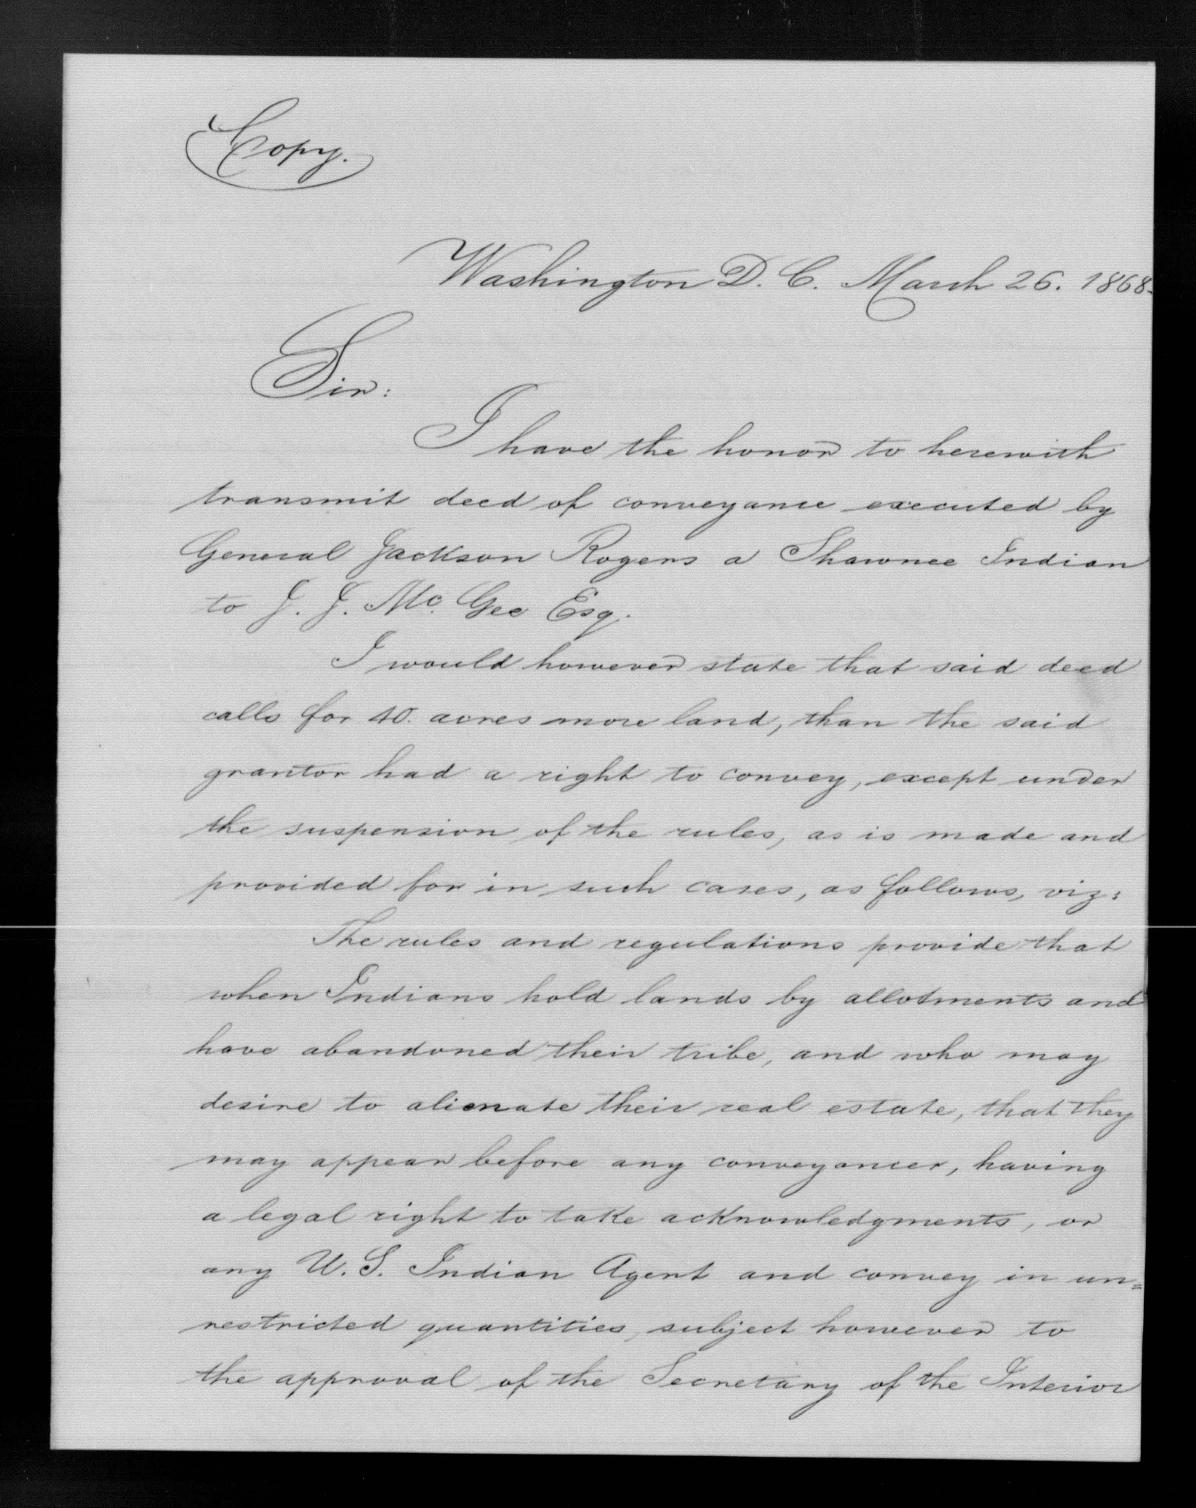 Copy.
Washington D. C. March 26. 1868.
Sir:
I have the honor to herewith
transmit deed of conveyance executed by
General Jackson Rogers a Shawnee Indian
to J. J. Mc. Gee Esq.
I would however state that said deed
calls for 40. acres more land, than the said
grantor had a right to convey, except under
the suspension of the rules, as is made and
provided for in such cases, as follows, viz:
The rules and regulations provide that
when Indians hold lands by allotments and
have abandoned their tribe, and who may
desire to alienate their real estate, that they
may appear before any conveyancer, having
a legal right to take acknowledgments, or
any U. S. Indian Agent and convey in un=
restricted quantities, subject however to
the approval of the Secretary of the Interior